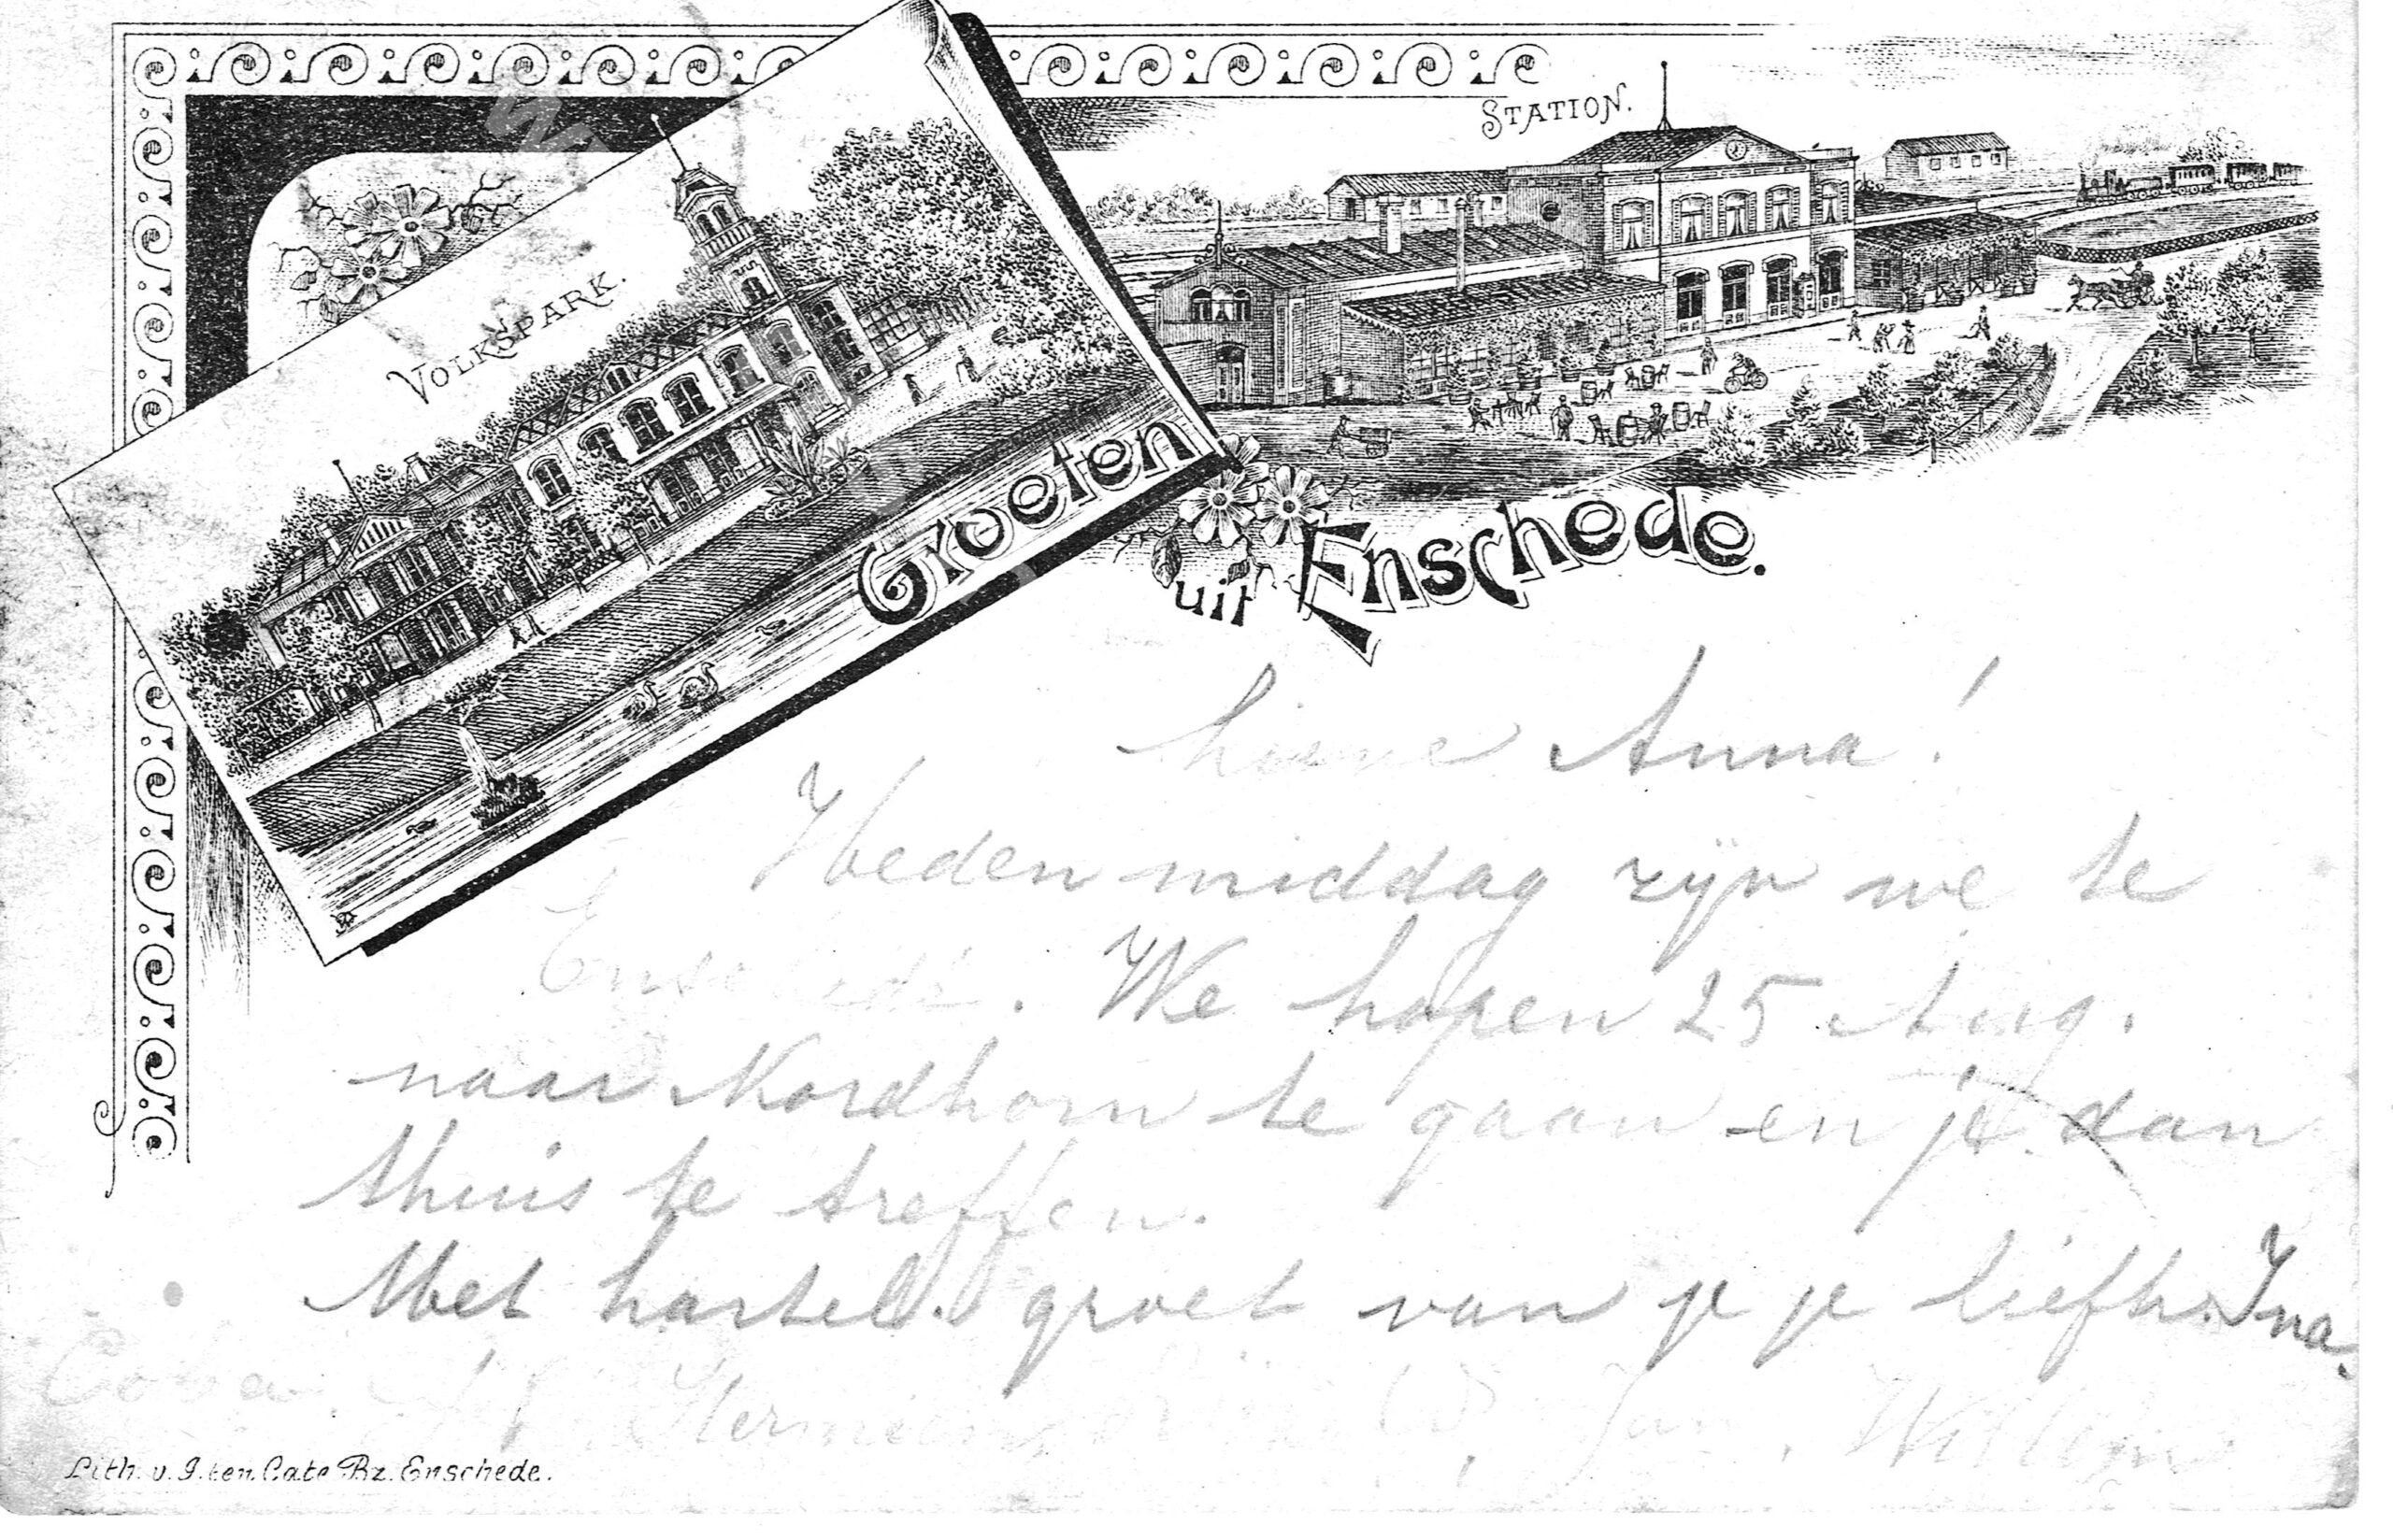 STATION.
VOLKSPARK.
Groeten
uit Enschede.
Lieve Anna!
Heden middag zijn we te
Enschedé. We hopen 25 Aug.
naar Nordhorn te gaan en je dan
thuis te treffen.
Met hartel. groet van je je liefh. Ina.
Coba Jan, Willem
Lith. v. J. ten Cate Bz. Enschede.